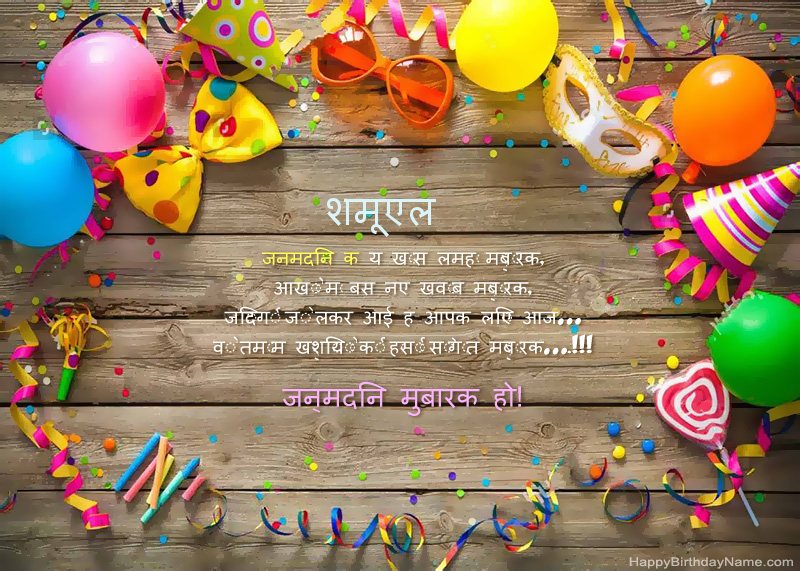 शमूएल
जनमदनि क य खास लमह मबारक,
आखोम बस नए खवाब मबारक,
जदिगी जो लेकर आई ह आपक लएि आज...
वो तमाम खशयिो की हसी सोगात मबारक...!!!
जन्मदनि मुबारक हो!
HappyBirthdayName.com